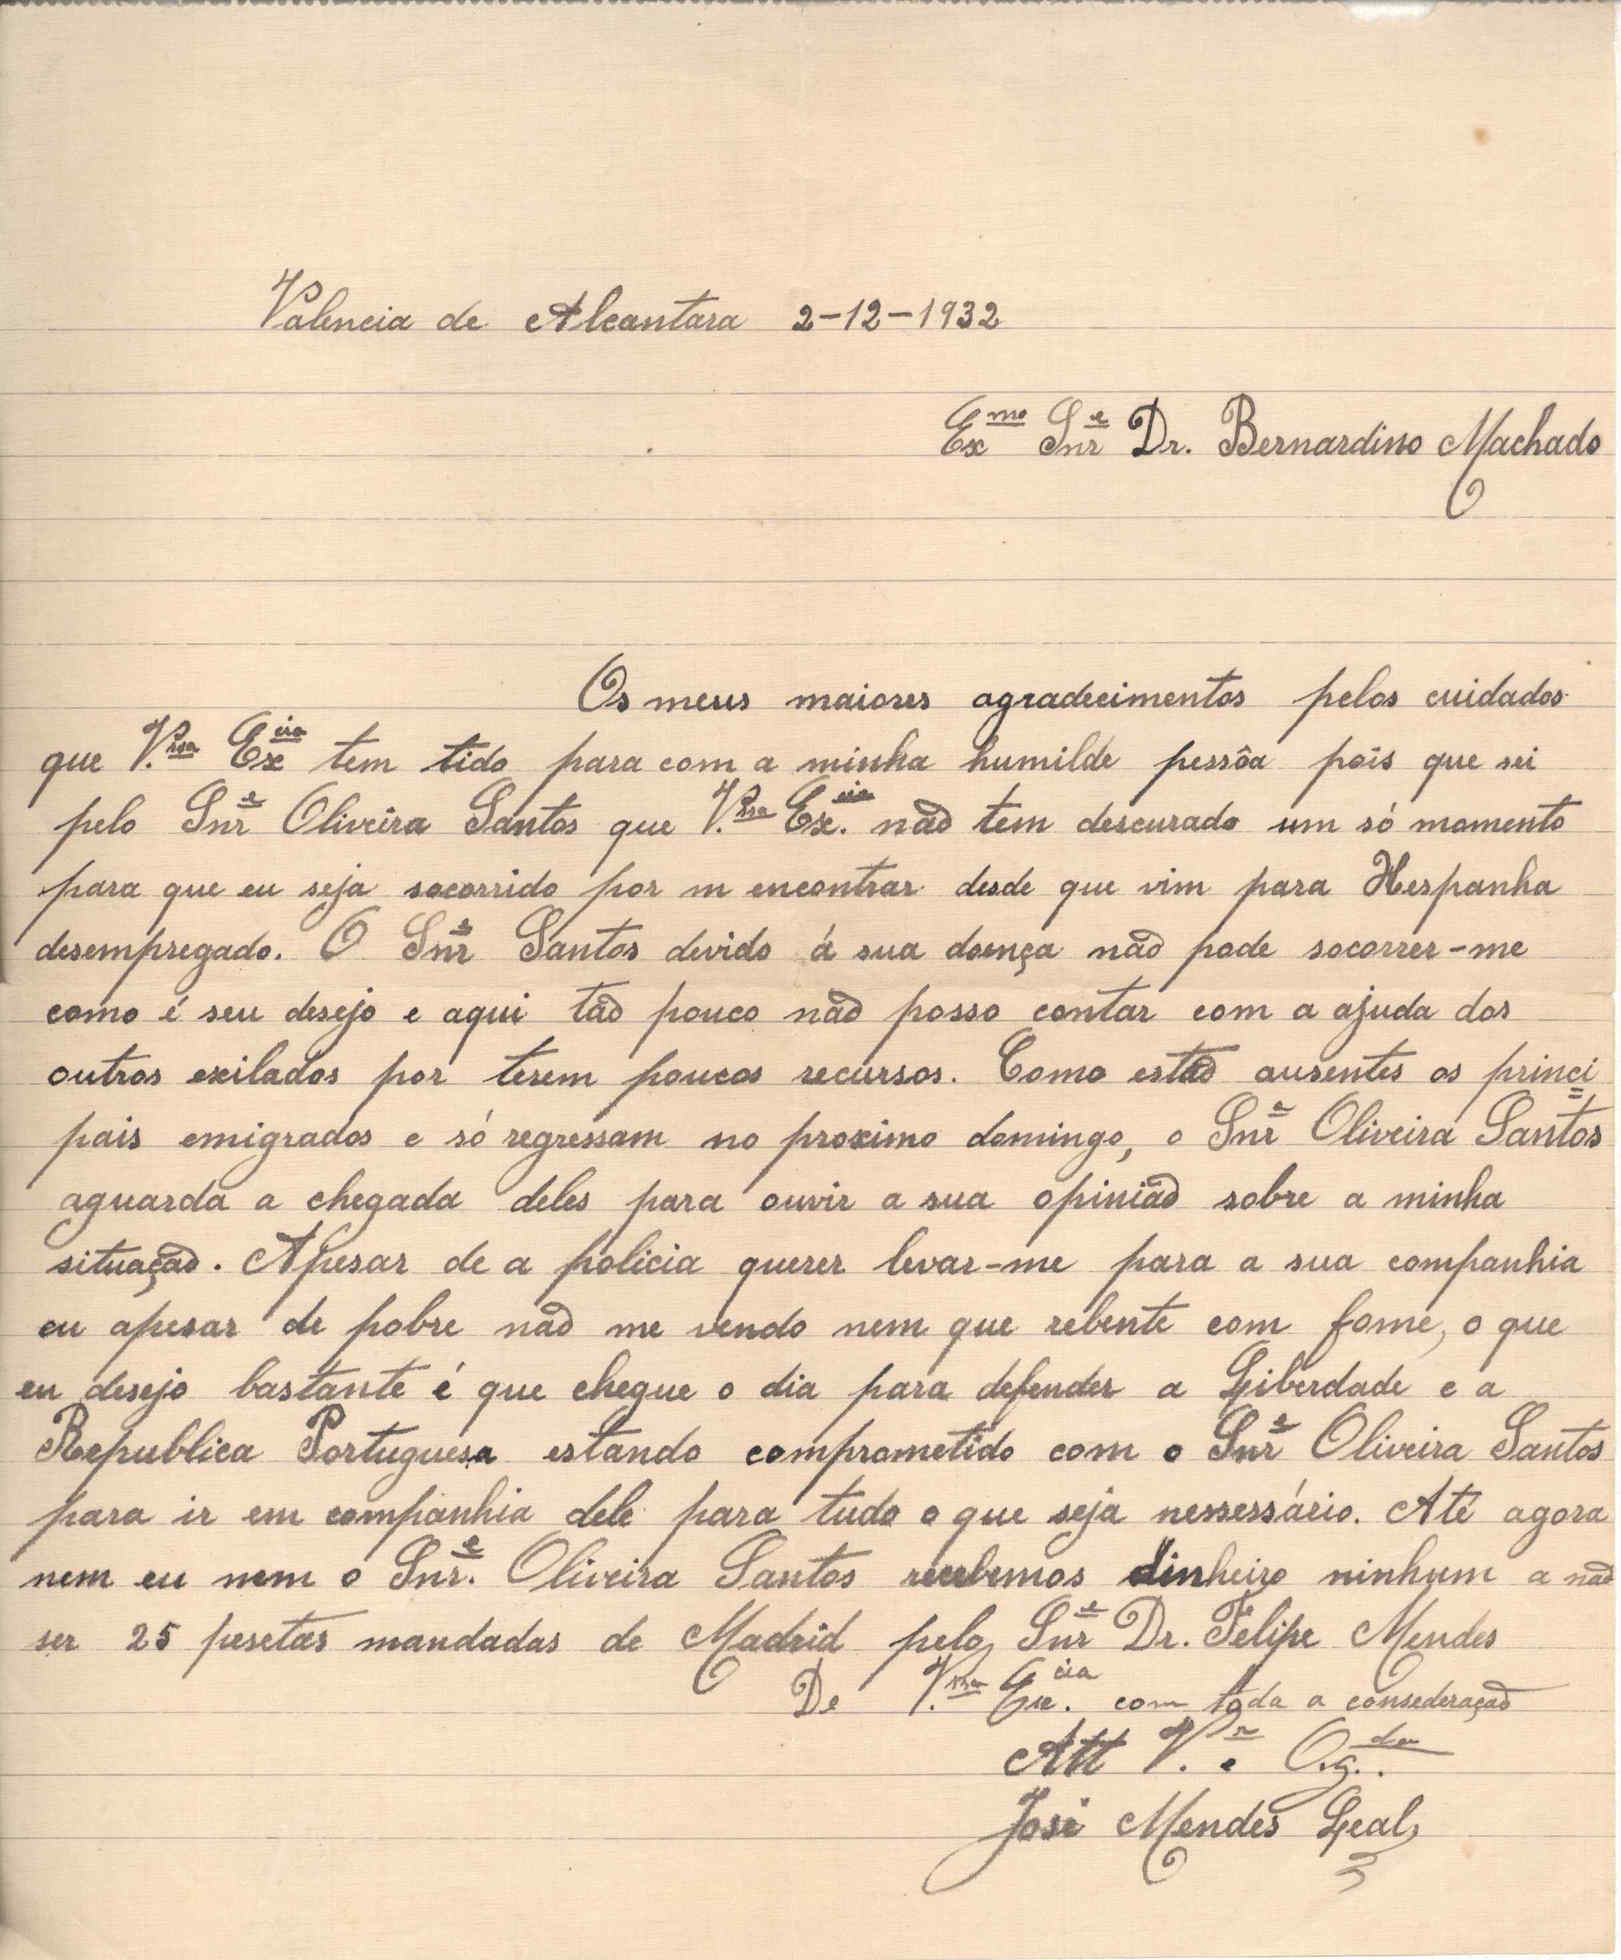 Valencia de Alcantara 2-12-1932
Exmo Snre Dr. Bernardino Machado
Os meus maiores agradecimentos pelos cuidados
que V.ssa Excia tem tido para com a minha humilde pessôa pois que sei
pelo Snre Oliveira Santos que V.ssa Ex.cia não tem descurado um só momento
para que eu seja socorrido por m encontrar desde que vim para Hespanha
desempregado. O Snre Santos devido á sua doença não pode socorrer-me
como é seu desejo e aqui tão pouco não posso contar com a ajuda dos
outros exilados por terem poucos recursos. Como estão ausentes os princi=
pais emigrados e só regressam no proximo domingo, o Snre Oliveira Santos
aguarda a chegada deles para ouvir a sua opinião sobre a minha
situação. Apesar de a policia querer levar-me para a sua companhia
eu apesar de pobre não me vendo nem que rebente com fome, o que
eu desejo bastante é que chegue o dia para defender a Liberdade e a
Republica Portuguesa estando comprometido com o Snre Oliveira Santos
para ir em companhia dele para tudo o que seja nessessário. Até agora
nem eu nem o Snr.e Oliveira Santos recebemos dinheiro ninhum a não
ser 25 pesetas mandadas de Madrid pelo Snre Dr. Felipe Mendes
De V.ssa Ex.cia com toda a consederação
Att V.r e
José Mendes Leal